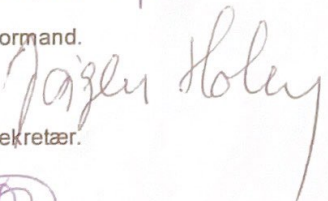 ormand.
Jørgen Holm
ekretær.